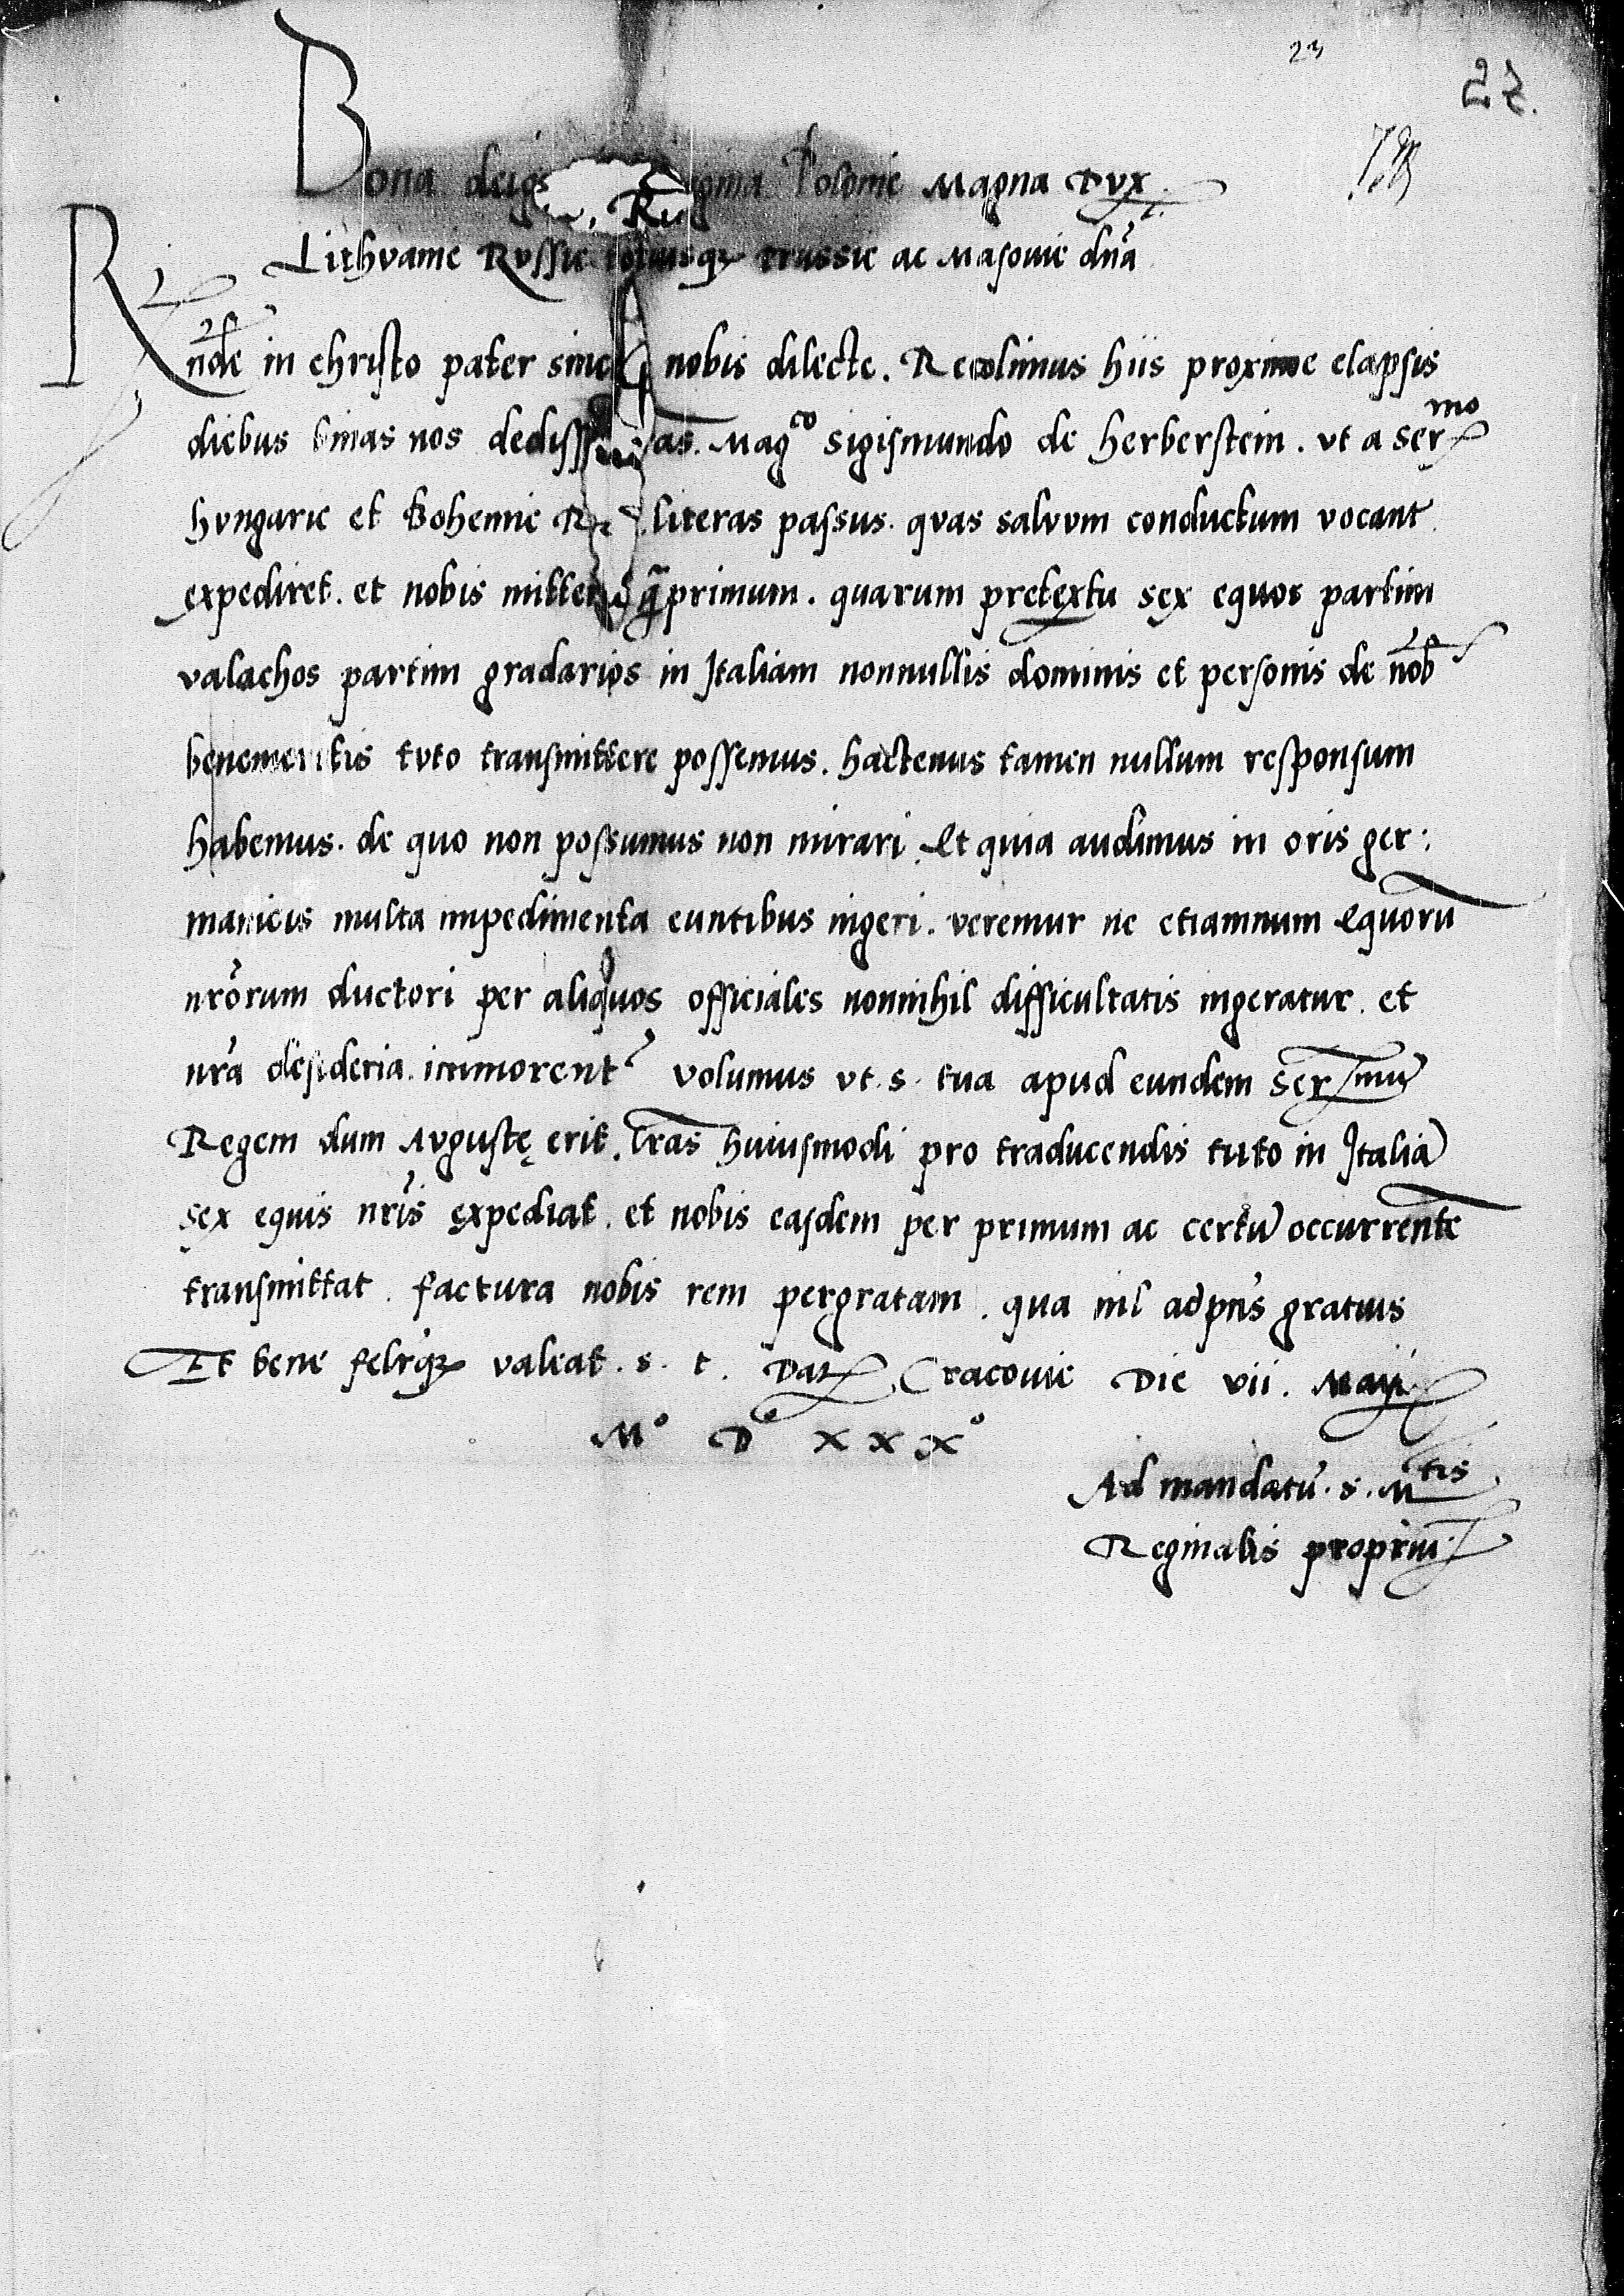 23
27.
Bona dei g Regina Polonie Magna Dux
Lithuanie Russie totiusq3 prussie ac Masouie dña
Rnde in christo pater sinc nobis dilecte. Recolimus hiis proxime elapsis
diebus binas nos dediss as. Mag^co sigismundo de herberstein. vt a ser^mo
hungarie et Bohemie R literas passus. quas saluum conductum vocant
expediret. et nobis mitter q̃primum. quarum pretextu sex equos partim
valachos partim gradarios in Italiam nonnullis dominis et personis de nob
benemeritis tuto transmittere possemus. hactenus tamen nullum responsum
habemus. de quo non possumus non mirari. Et quia audimus in oris ger:
manicis multa impedimenta euntibus ingeri. veremur ne etiamnum equorũ
nr̃orum ductori per aliquos officiales nonnihil difficultatis ingeratur. et
nr̃a desideria immorent^r volumus vt. s. tua apud eundem Ser^mũ
Regem dum Augustę erit. lr̃as huiusmodi pro traducendis tuto in Italiã
sex equis nr̃is expediat. et nobis easdem per primum ac certũ occurrent̃e
transmittat. factura nobis rem pergratam. qua nil ad pñs gratius
Et bene feliq3 valeat. s. t. Dat Cracouie Die vii. Maij
M° D° xxx°
Ad mandatũ. s. M^tis
Reginalis propriũ